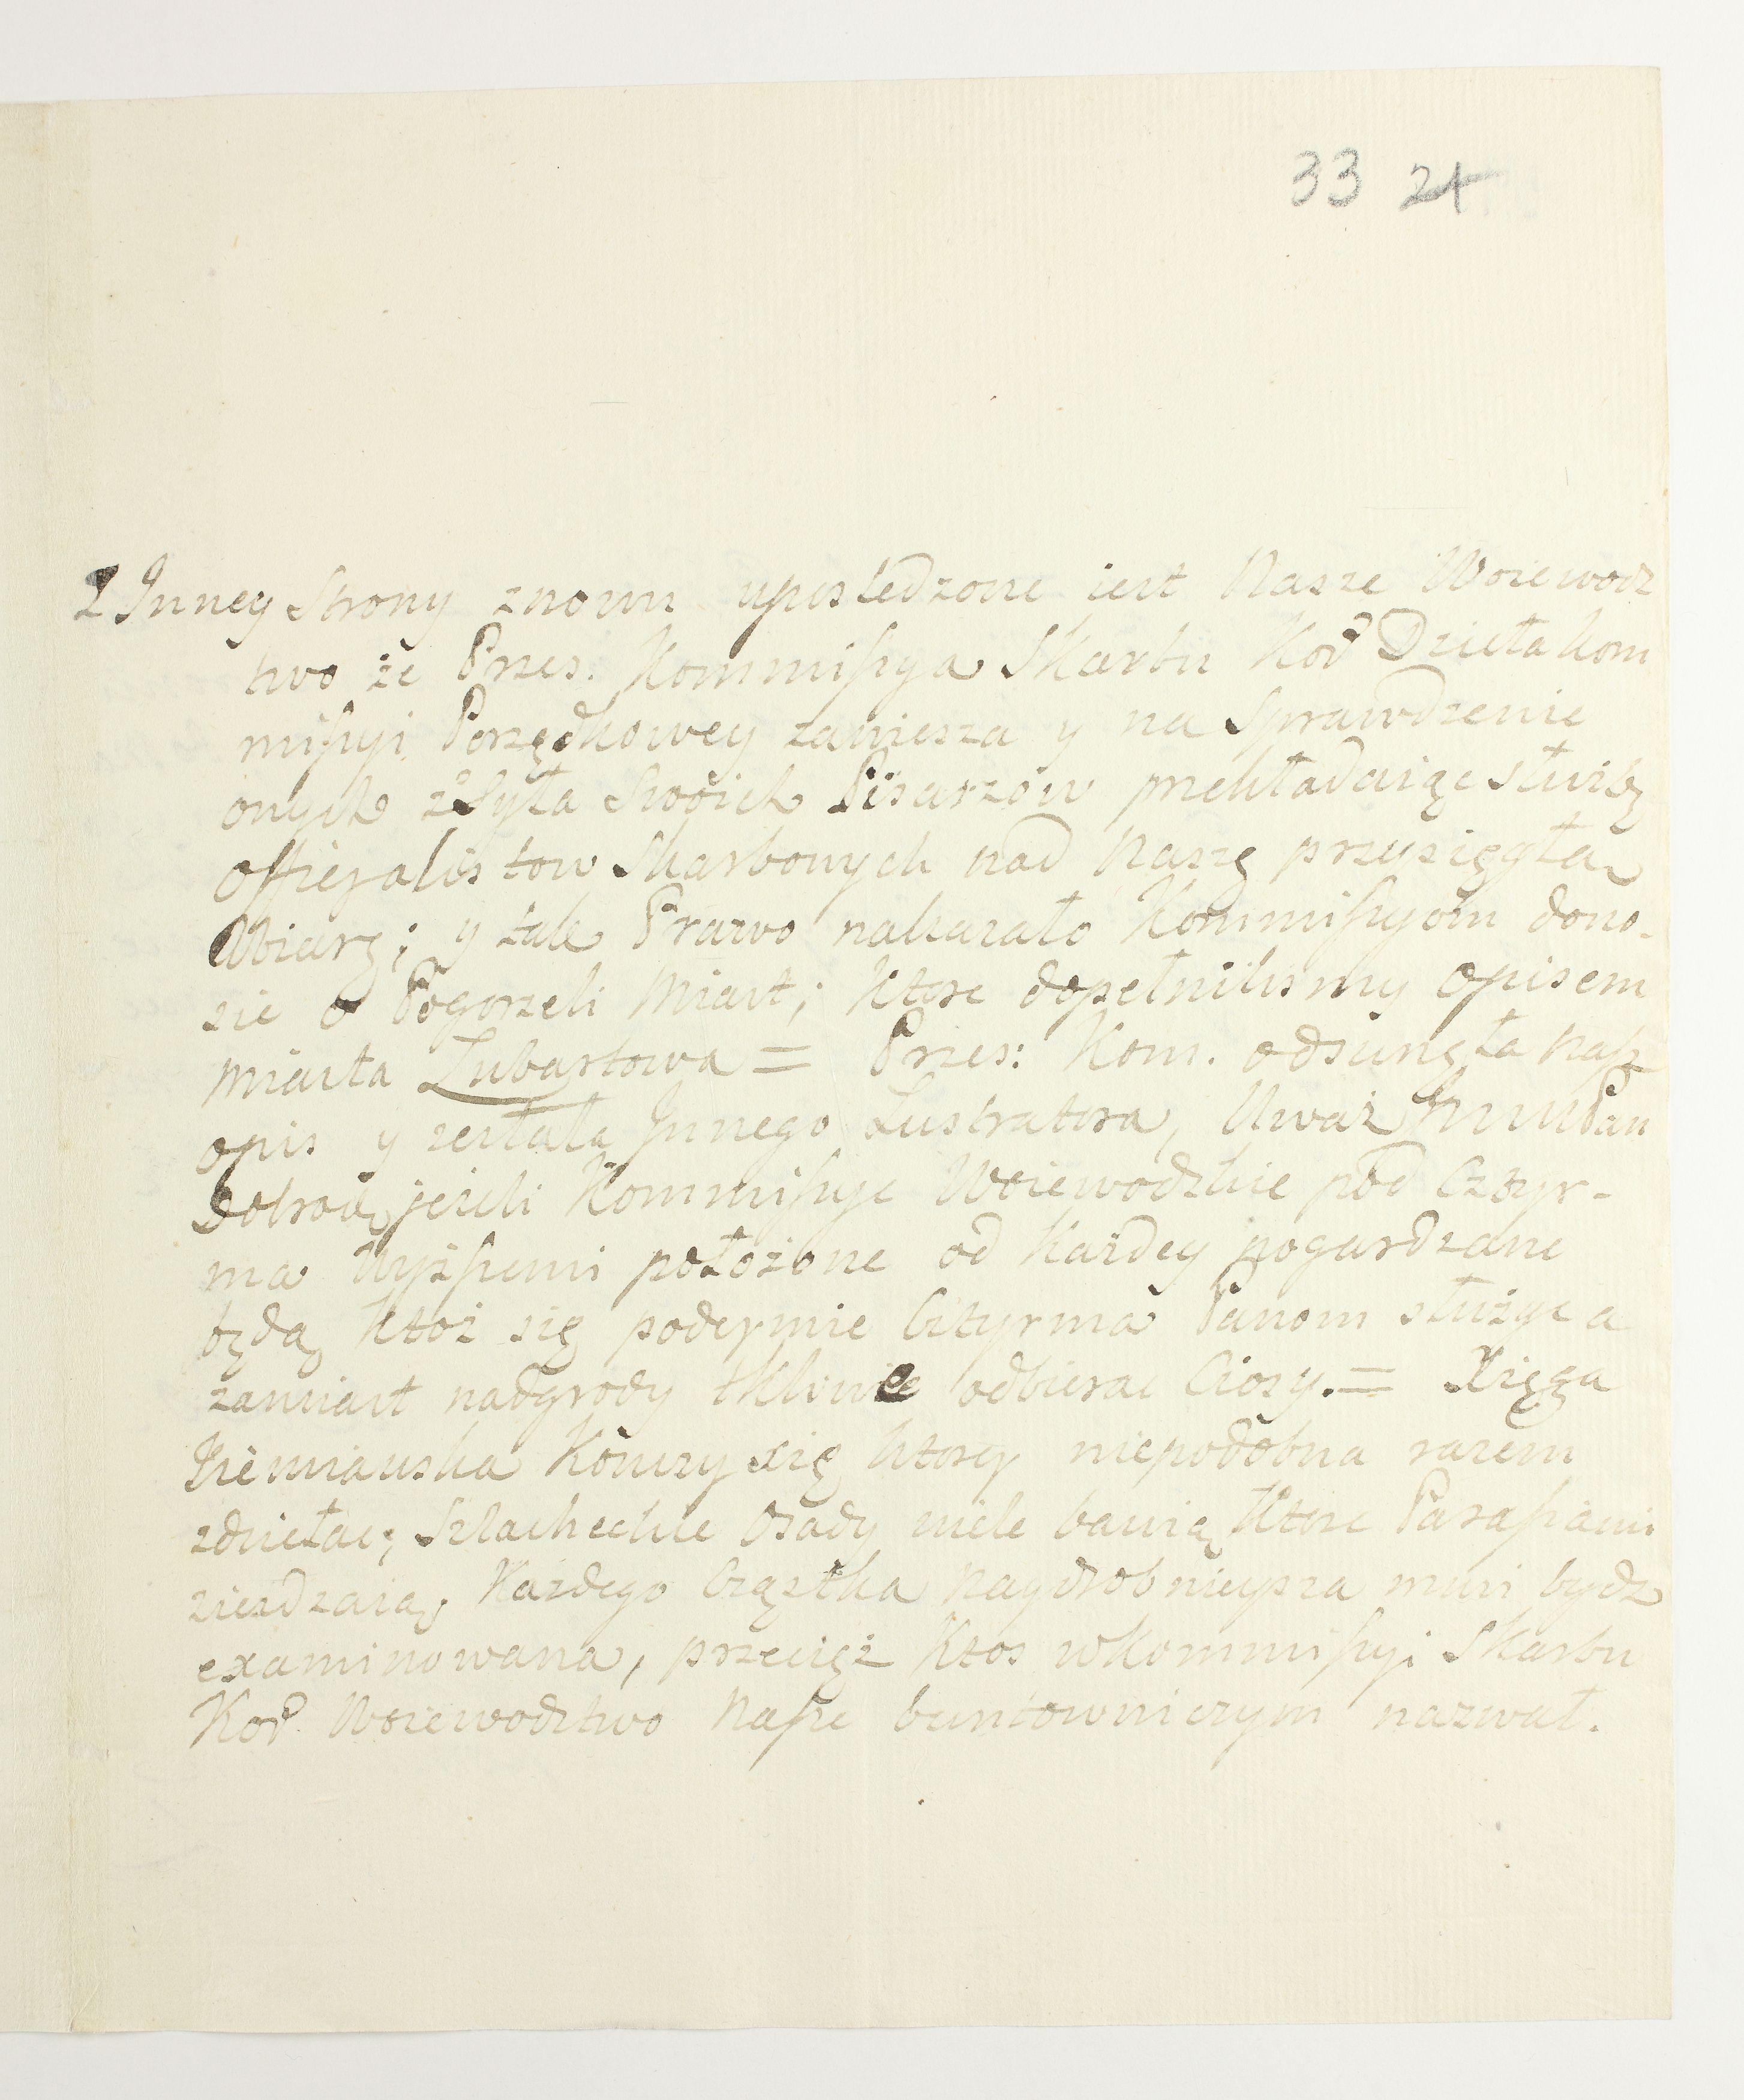 33 24
Z Inney Strony znowu upośledzone iest Nasze Woiewodz
two że Przes: Kommissya Skarbu Kor Dzieła kom
missyi Porządkowey zawiesza y na Sprawdzenie
onych zsyła Swoich Pisarzów przekładaiąc służbę
Officyalistow Skarbowych nad Naszę przysięgłą
Wiarę; y tak Prawo nakazało Kommissyom dono-
sic o Pogorzeli Miast; ktore dopełnilismy Opisem
Miasta Lubartowa = Przes: Kom. odsunęła Nasz
opis y zesłała Innego Lustratora, Uważ Pan
Dobrod. jeżeli Kommissye Woiewodzkie pod Cztyr-
ma Wyższemi położone od każdey pogardzane
będą, ktoż się podeymie Cztyrma Panom służyc a
zamiast nadgrody tkliwe odbierac Ciosy. = Xięga
Ziemianska kończy się ktorey niepodobna razem
zdziełac; Szlacheckie Osady wiele bawią ktore Parafiami
ziezdzaią, każdego Cząstka naydrobnieysza musi bydz
examinowana, przecięż ktos w Kommissyi Skarbu
Kor. Woiewodztwo Nasze buntowniczym nazwał.